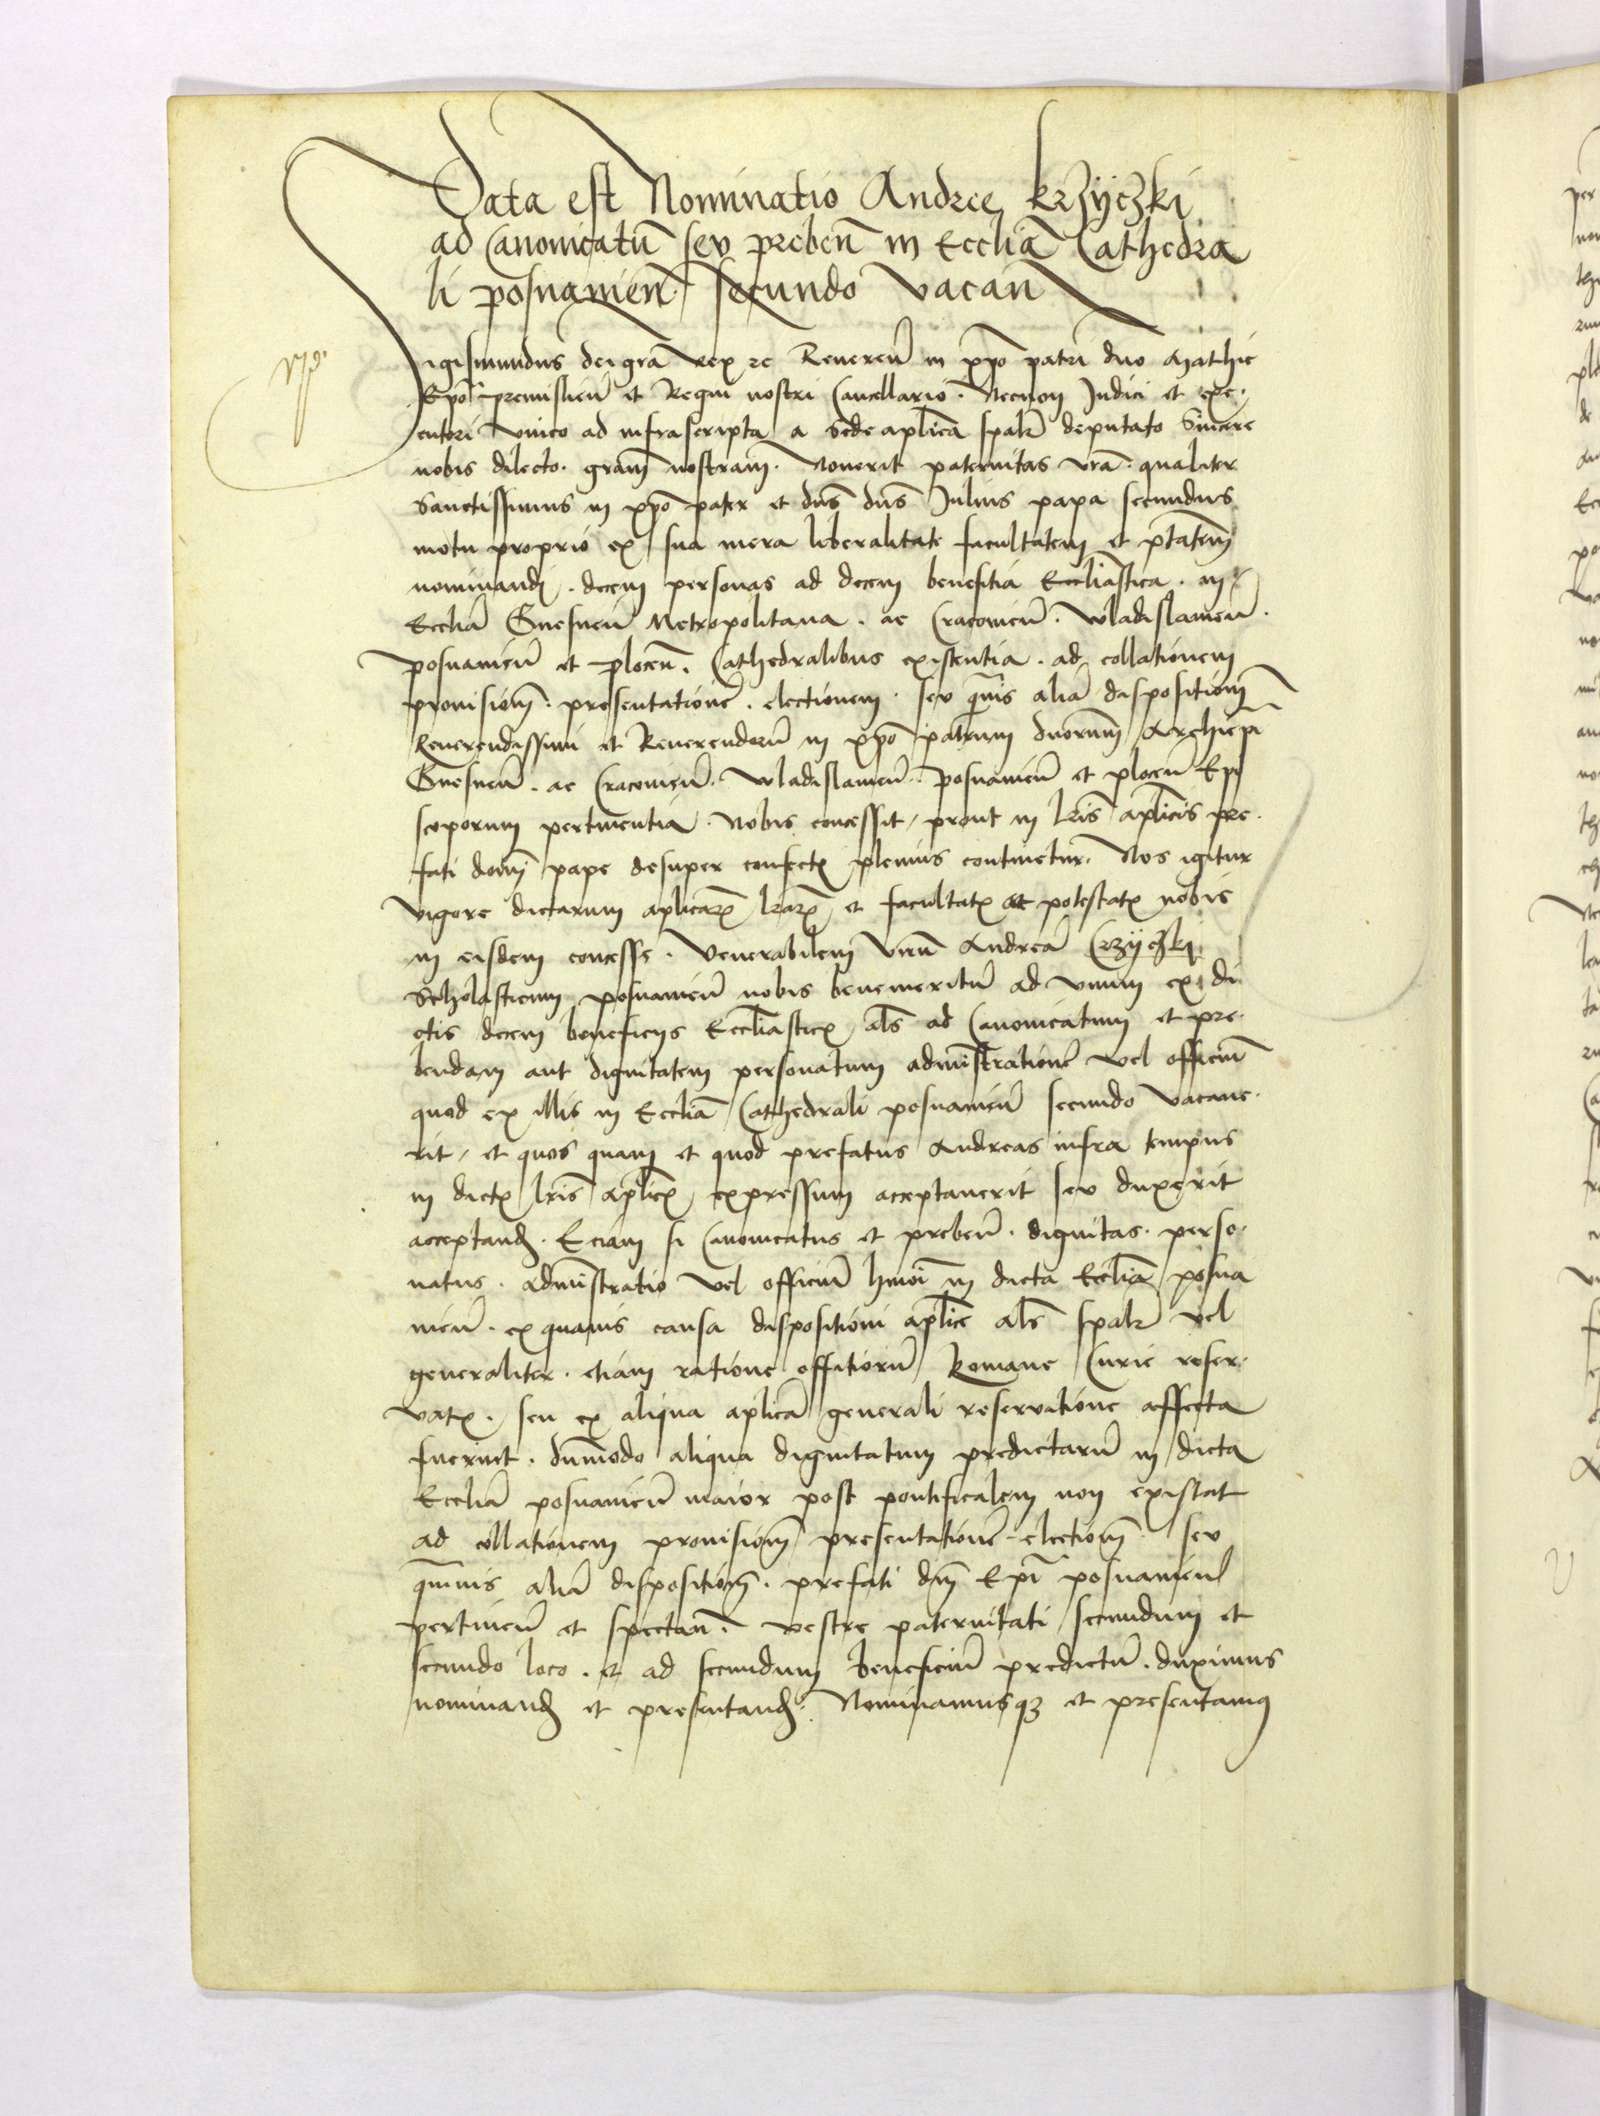 Data est Nominatio Andree Krzyczki
ad Canonicatū seu prebeñ in Ecclia Cathedra
li posnanieñ secundo vacañ
Sigismundus dei gra Rex rc Reuereñ in xpo patri dno Mathie
Epo premislieñ et Regni nostri Cancellario. Necnon Iudici et exe.
cutori vnico ad infrascripta a Sede aplica spalr deputato Sincere
nobis dilecto. gram nostram. Nouerit paternitas vra. qualiter
Sanctissimus in xpo pater et dns dns Iulius papa secundus
motu proprio ex sua mera liberalitate facultatem et ptatem
nominandi. decem personas ad decem benefitia Eccliastica. in
Ecclia Gnesneñ Metropolitana. ac Cracouieñ. Wladislauieñ.
posnanieñ et Ploceñ. Cathedralibus existentia. ad collationem
prouisiom. presentatione. electionem. seu quis alia dispositiom
Reuerendissimi et Reuerendorū in xpo patrum dnorum Archiepi
Gnesneñ. ac Cracouieñ. Wladislauieñ. Posnanieñ et ploceñ Epi
scoporum pertinentia. Nobis concessit, prout in lris aplicis pre.
fati domi pape desuper confectis plenius continetur. Nos igitur
vigore dictarum aplicarum lrarum et facultatis et potestatis nobis
in eisdem concesse. Venerabilem virū Andrea Crzyczki
Scholasticum posnanieñ nobis benemeritū ad vnum ex di
ctis decem beneficijs Eccliasticis als ad Canonicatum et pre.
bendam aut dignitatem personatum administratione vel officiū
quod ex illis in Ecclia Cathedrali posnanieñ secundo vacaue.
rit, et quos quam et quod prefatus Andreas infra tempus
in dictis lris aplicis expressum acceptauerit seu duxerit
acceptand. Eciam si Canonicatus et prebeñ. dignitas. perso.
natus. administratio vel officiū hmoi in dicta Ecclia posna
nieñ. ex quauis causa dispositioni aplice als spalr vel
generaliter. etiam ratione offitiorū Romane Curie reser.
vatis. seu ex aliqua aplica generali reseruatione affecta
fuerint. dummodo aliqua dignitatum predictarū in dicta
Ecclia posnanieñ maior post pontificalem non existat
ad collationem prouisiom presentatione. electiom. seu
quis alia dispositiom. prefati dni Epi posnanieñ
pertineñ et spectañ. vestre paternitati secundum et
secundo loco. et ad secundum beneficiū predictū. duximus
nominand et presentand. Nominamusq3 et presentamus